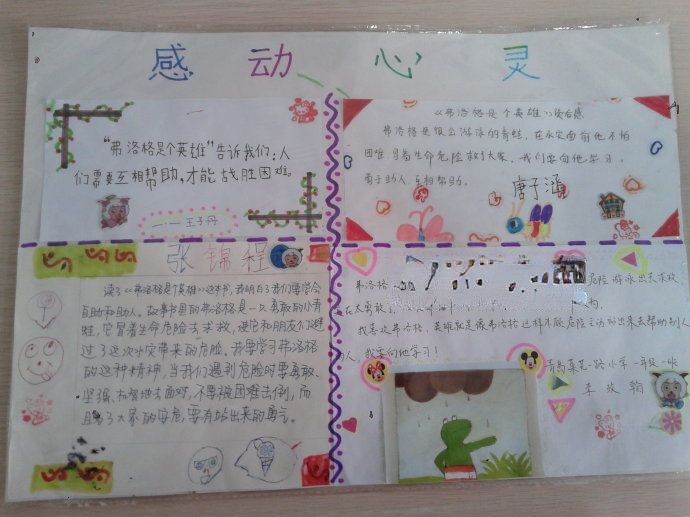 感动心灵
“弗洛格是个英雄”告诉我们：人
们需要互相帮助，才能战胜困难。
——王子丹
《弗洛格是个英雄》读后感
弗洛格是很会游泳的青蛙，在水灾面前他不怕
困难，冒着生命危险救了大家，我们要向他学习，
勇于助人，互相帮助。
唐子涵
张锦程
读了《弗洛格是个英雄》这本书，我明白了我们要学会
互助和助人。故事书里的弗洛格是一只勇敢的小青
蛙，它冒着生命危险去求救，使它和朋友们逃
过了这次水灾带来的危险。我要学习弗洛格
的这种精神，当我们遇到危险时要勇敢、
坚强、有智地去面对，不要被困难击倒，而
且为了大家的安危，要有站出来的勇气。
弗洛格 危险游泳出去求救
在太勇敢了
我喜欢弗洛格，英雄就是像弗洛格这样不顾危险主动站出来去帮助别人
人，我要向他学习！
青岛嘉芝路小学一年级一班